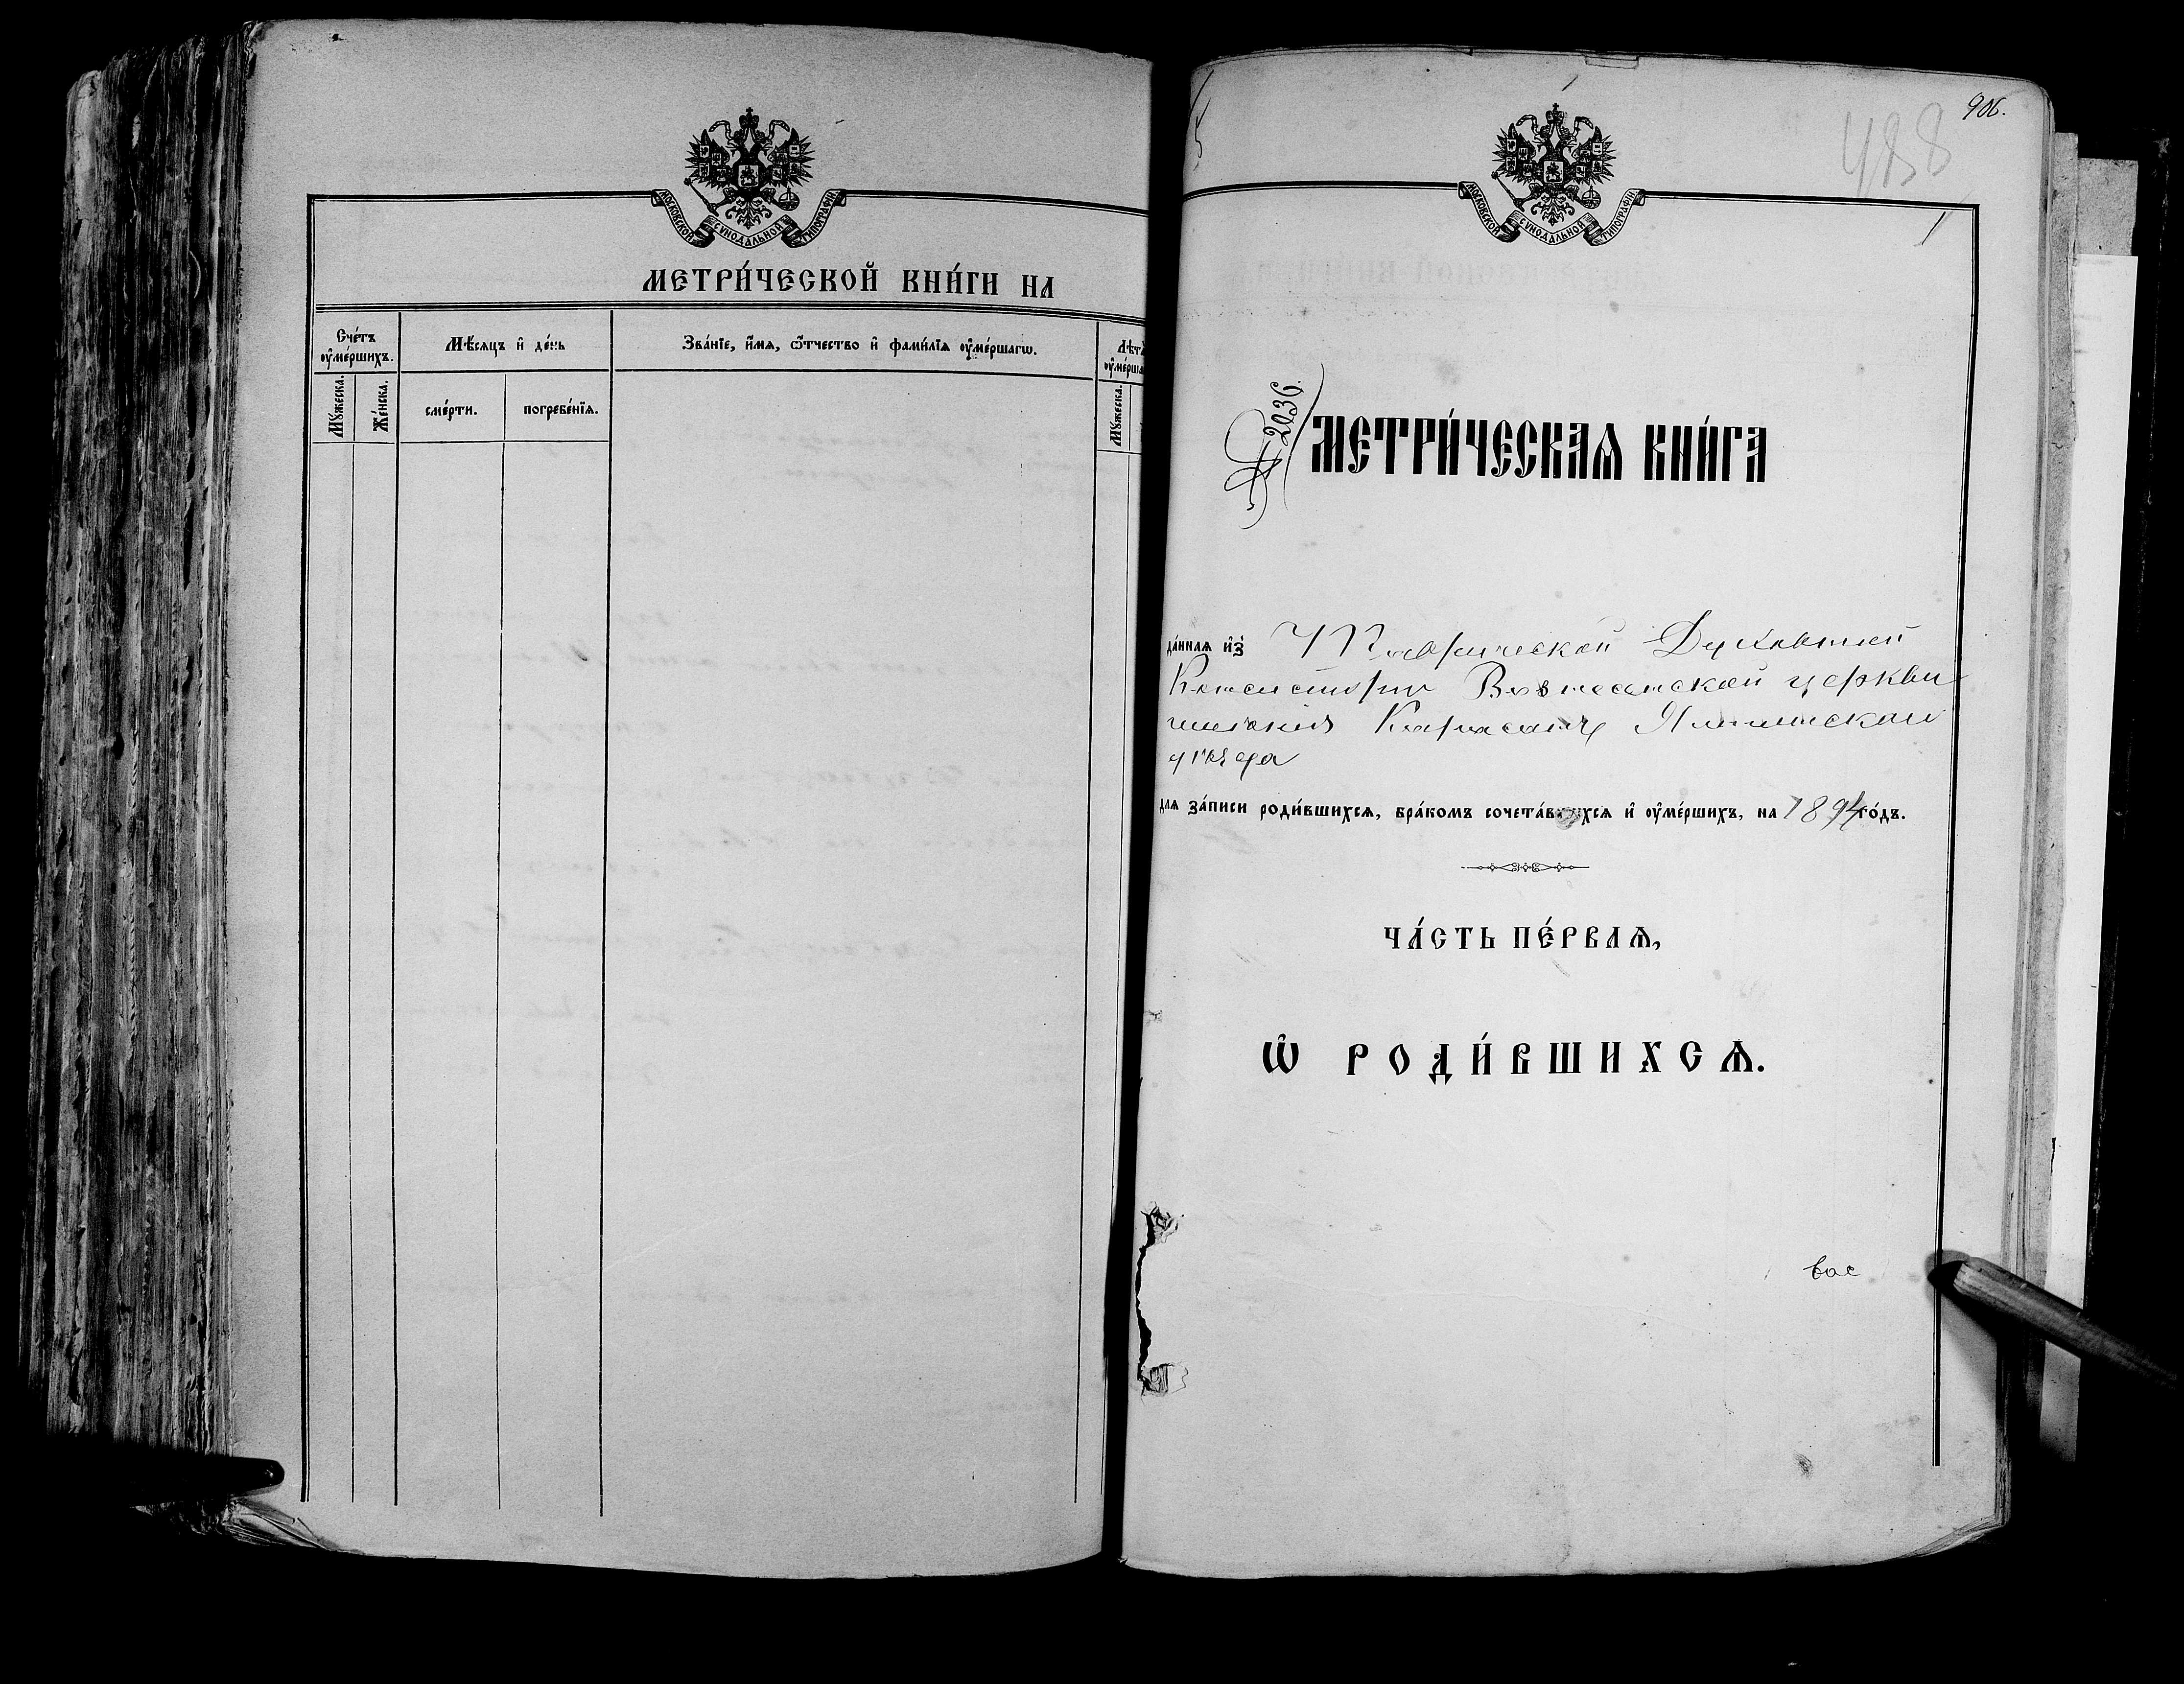 МОСКОВСКОЙ СѴНОДАЛЬНОЙ ТИПОГРАФІИ
МЕТРИ́ЧЕСКОЙ КНИ́ГИ НА
Сче́тъ ᲂу҆ме́ршихъ.
Мѣ́сяцъ и҆ де́нь
Зва́нїе, и҆́мѧ, ѻ҆́тчество и҆ фами́лїѧ ᲂу҆ме́ршагѡ.
Лѣ́т
ᲂу҆ме́рша
Мꙋ́жеска.
Же́нска.
сме́рти.
погребе́нїѧ.
Мꙋ́жеска.
906.
488
МОСКОВСКОЙ СѴНОДАЛЬНОЙ ТИПОГРАФІИ
№ 2036.
МЕТРИ́ЧЕСКАѦ КНИ́ГА
да́ннаѧ и҆з̾ Таврической Духовной
Консисторіи Вознесенской церкви
Карасанъ Ялтинскаго
уѣзда
для за́писи роди́вшихсѧ, бра́комъ сочета́вшихсѧ и҆ ᲂу҆ме́ршихъ, на 1894 го́дъ.
ЧА́СТЬ ПЕ́РВАѦ,
Ѡ҆ РОДИ́ВШИХСѦ.
вос